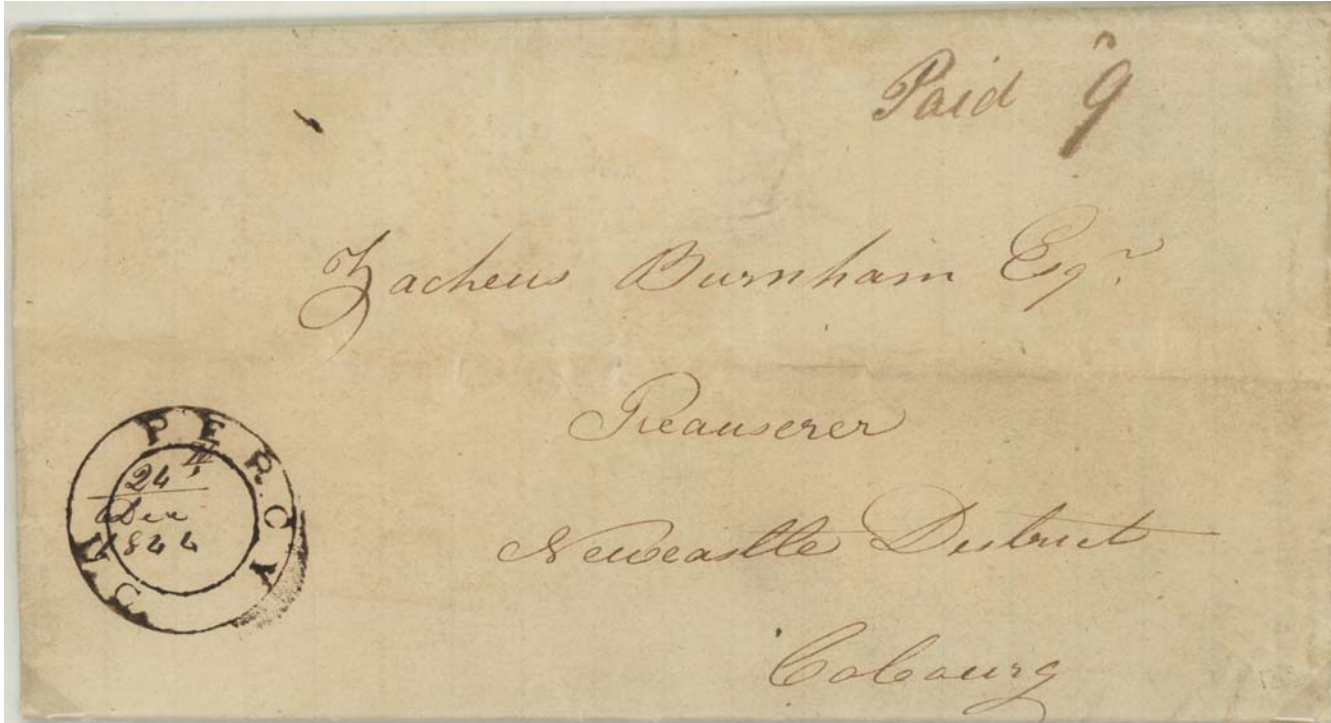 Paid 9
Zacheus Burnham Esqr.
Treauserer
Newcastle District
Cobourg
PERCY
24th
Dec
1844
U.C.